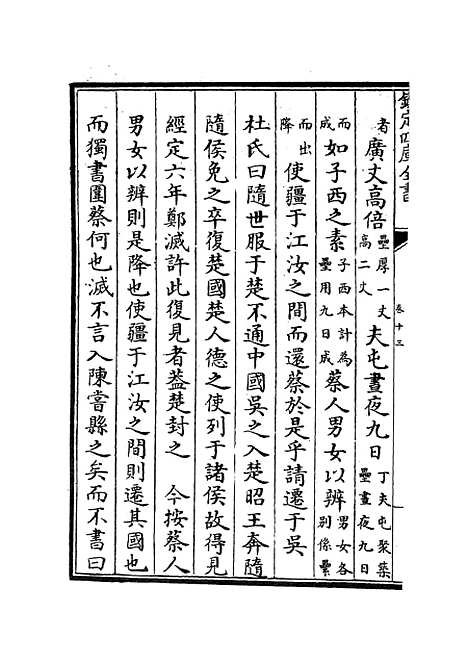 欽定四庫全書
卷十三
者廣丈高倍壘厚一丈高二丈夫屯晝夜九日丁夫屯聚築壘晝夜九日
而成如子西之素子西本計為壘用九日成蔡人男女以辨男女各别係纍
而出降使疆于江汝之間而還蔡於是乎請遷于吳
杜氏曰隨世服于楚不通中國吳之入楚昭王奔隨
隨侯免之卒復楚國楚人德之使列于諸侯故得見
經定六年鄭滅許此復見者葢楚封之　今按蔡人
男女以辨則是降也使疆于江汝之間則遷其國也
而獨書圍蔡何也滅不言入陳嘗縣之矣而不書曰